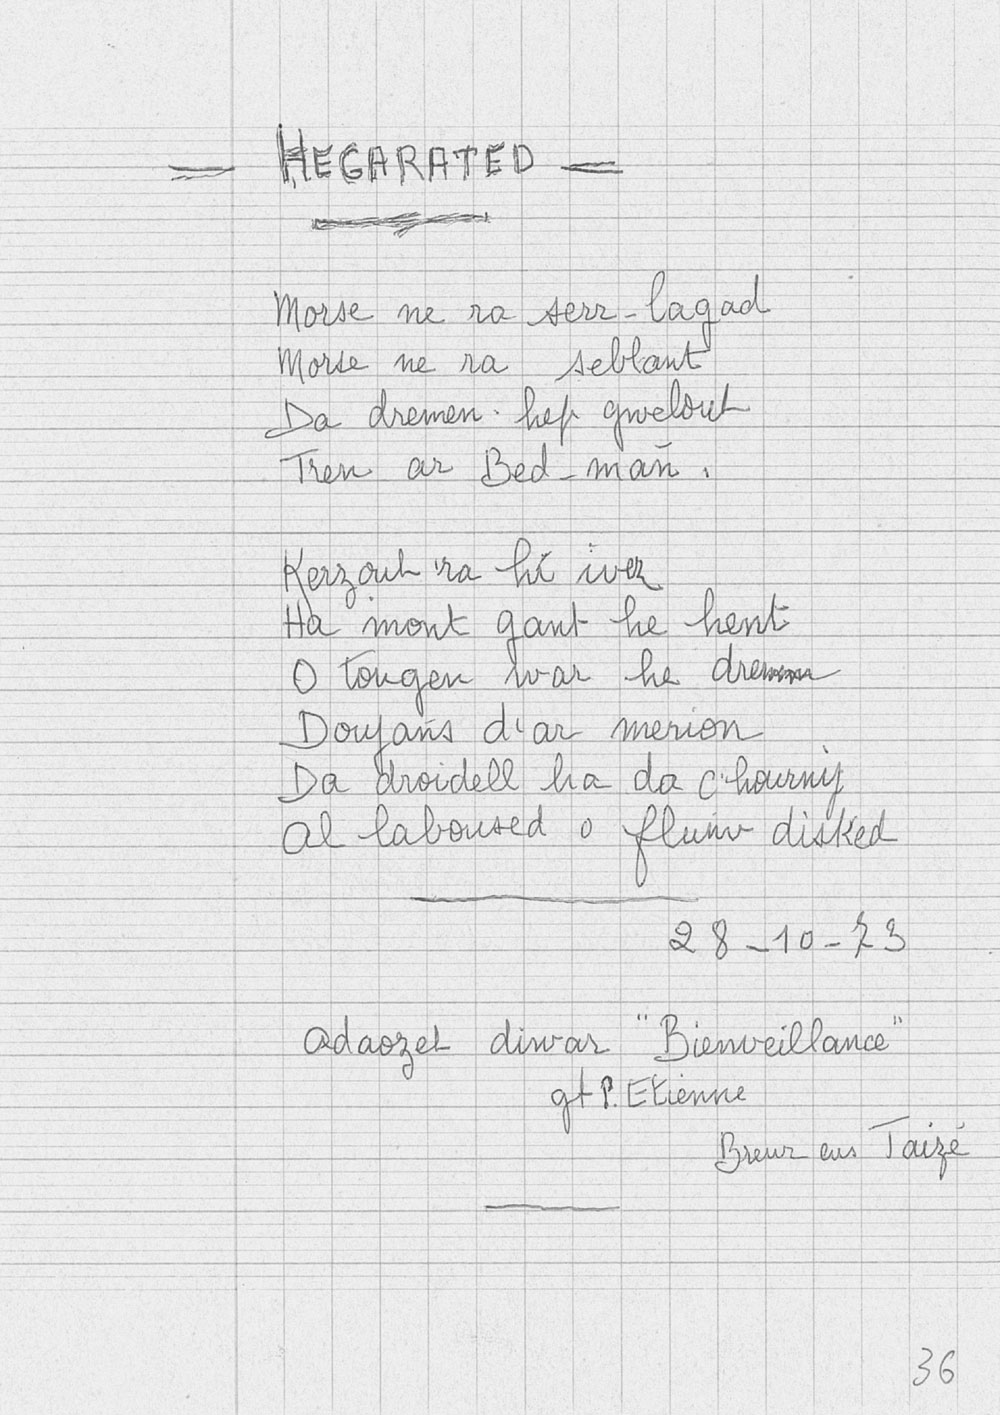 — HEGARATED —
Morse ne ra serr-lagad
Morse ne ra seblant
Da dremen hep gwelout
Tren ar Bed-mañ.
Kerzout 'ra hi ivez
Ha mont gant he hent
O tougen war he dremm
Doujañs d'ar merion
Da droidell ha da c'hournij
Al laboused o flunv disked
28-10-73
Adaozet diwar "Bienveillance"
gt P. Etienne
Breur eus Taizé
36